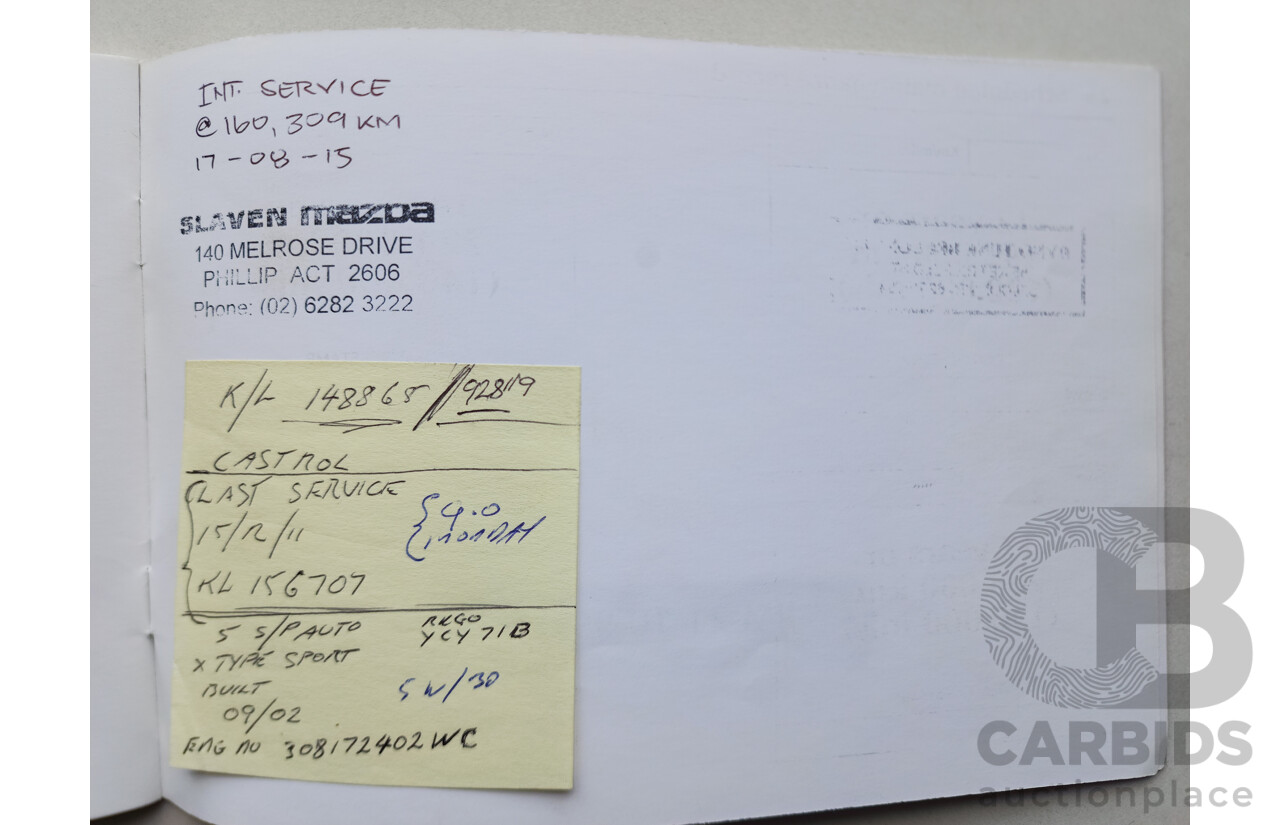 INT. SERVICE
@ 160,309 KM
17-08-15
SLAVEN mazda
140 MELROSE DRIVE
PHILLIP ACT 2606
Phone: (02) 6282 3222
K/L 148865 / 92819
CASTROL
LAST SERVICE
15/12/11
4.0
KL 156707
5 S/P AUTO
YCY 71B
X TYPE SPORT
BUILT
5W/30
09/02
ENG NO 308172402WC
CARBIDS
auctionplace